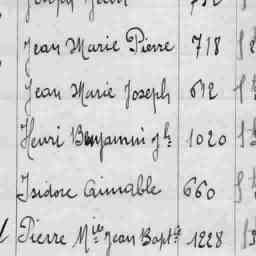 Jean Marie Pierre 718
Jean Marie Joseph 612
Henri Benjamin Jh 1020
Isidore Aimable 660
Pierre Mie Jean Bapte 1228